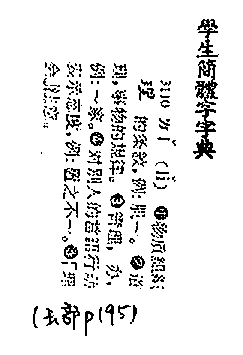 學生簡體字字典
3110 ㄌㄧˇ (lǐ) ❶物质组织
理 的条纹,例:肌~。❷道
理,事物的规律。❸管理,办,
例:~家。❹对别人的言语行动
表示态度,例:置之不~。
(玉部 p195)